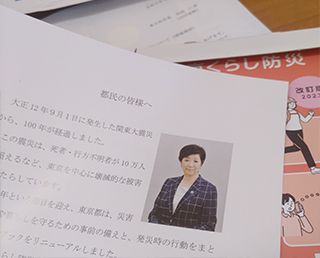 くらし防災
改訂版
202
都民の皆様へ
大正12年9月1日に発生した関東大震災
から、100年が経過しました。
この震災は、死者・行方不明者が10万人
超えるなど、東京を中心に壊滅的な被害
たらしています。
年という
を迎え、東京都は、災害
しを守るための事前の備えと、発災時の行動をまと
ックをリニューアルしました。